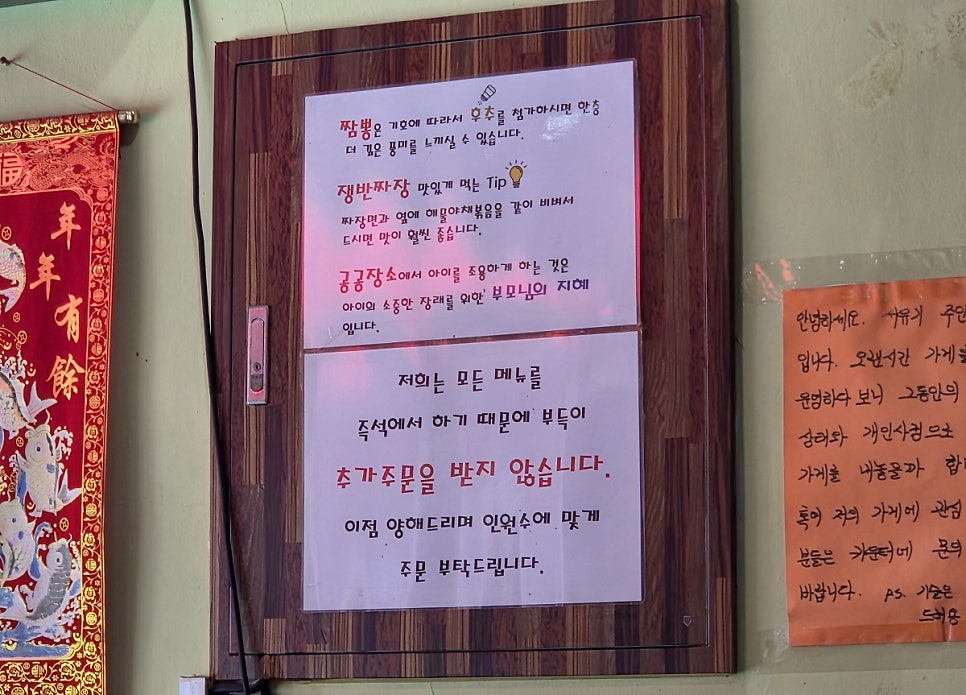 福
年
年
有
餘
짬뽕은 기호에 따라서 후추를 첨가하시면 한층
더 깊은 풍미를 느끼실 수 있습니다.
쟁반짜장 맛있게 먹는 Tip
짜장면과 옆에 해물야채볶음을 같이 비벼서
드시면 맛이 훨씬 좋습니다.
공공장소에서 아이를 조용하게 하는 것은
아이의 소중한 장래를 위한 부모님의 지혜
입니다.
저희는 모든 메뉴를
즉석에서 하기 때문에 부득이
추가주문을 받지 않습니다.
이점 양해드리며 인원수에 맞게
주문 부탁드립니다.
안녕하세요. 서유기 주인
입니다. 오랜시간 가게를
운영하다 보니 그동안의
상태와 개인사정으로
가게를 내놓을까 합니
혹여 저의 가게에 관심
분들은 카운터에 문의
바랍니다. P.S. 기술은